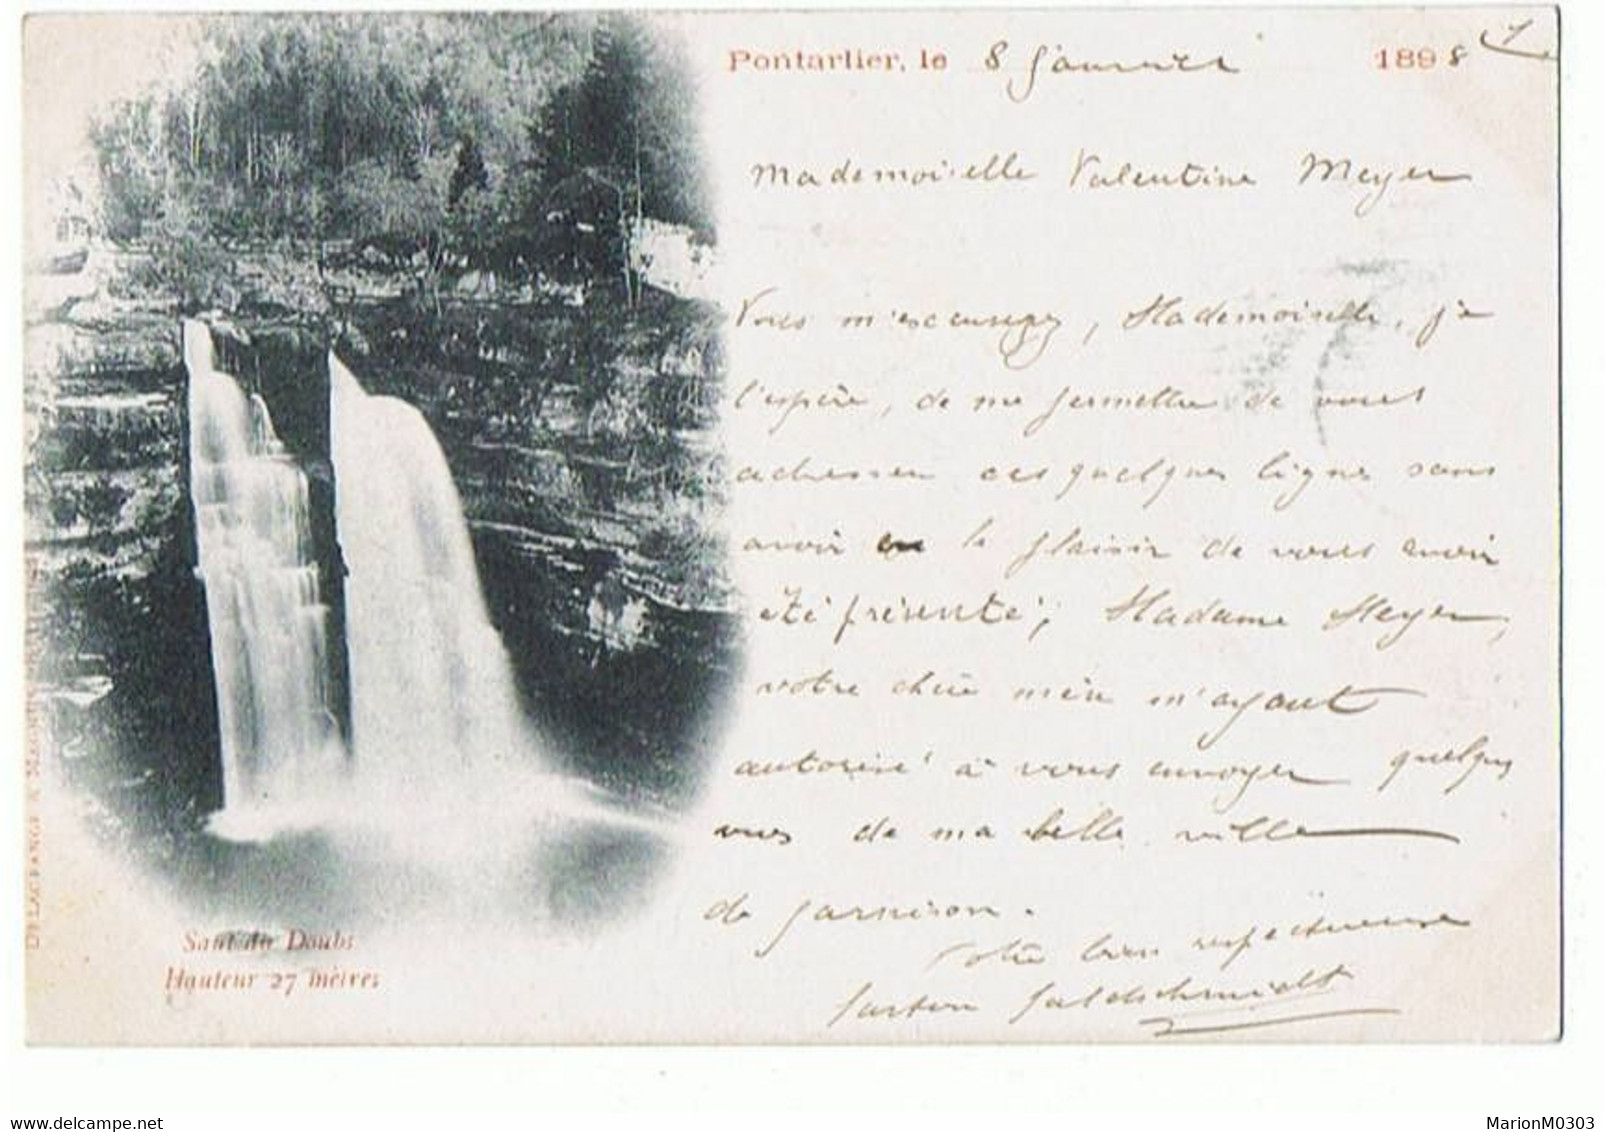 Pontarlier, le 8 Janvier 1898
1
Mademoiselle Valentine Meyer
Vous m'excuserez, Mademoiselle, je
l'espère, de me permettre de vous
adresser ces quelques lignes sans
avoir eu le plaisir de vous avoir
été présenté; Madame Meyer,
votre chère mère m'ayant
autorisé à vous envoyer quelques
vues de ma belle ville
de garnison.
Votre bien respectueuse
Gaston Goldschmidt
Saut du Doubs
Hauteur 27 mètres
MarionM0303